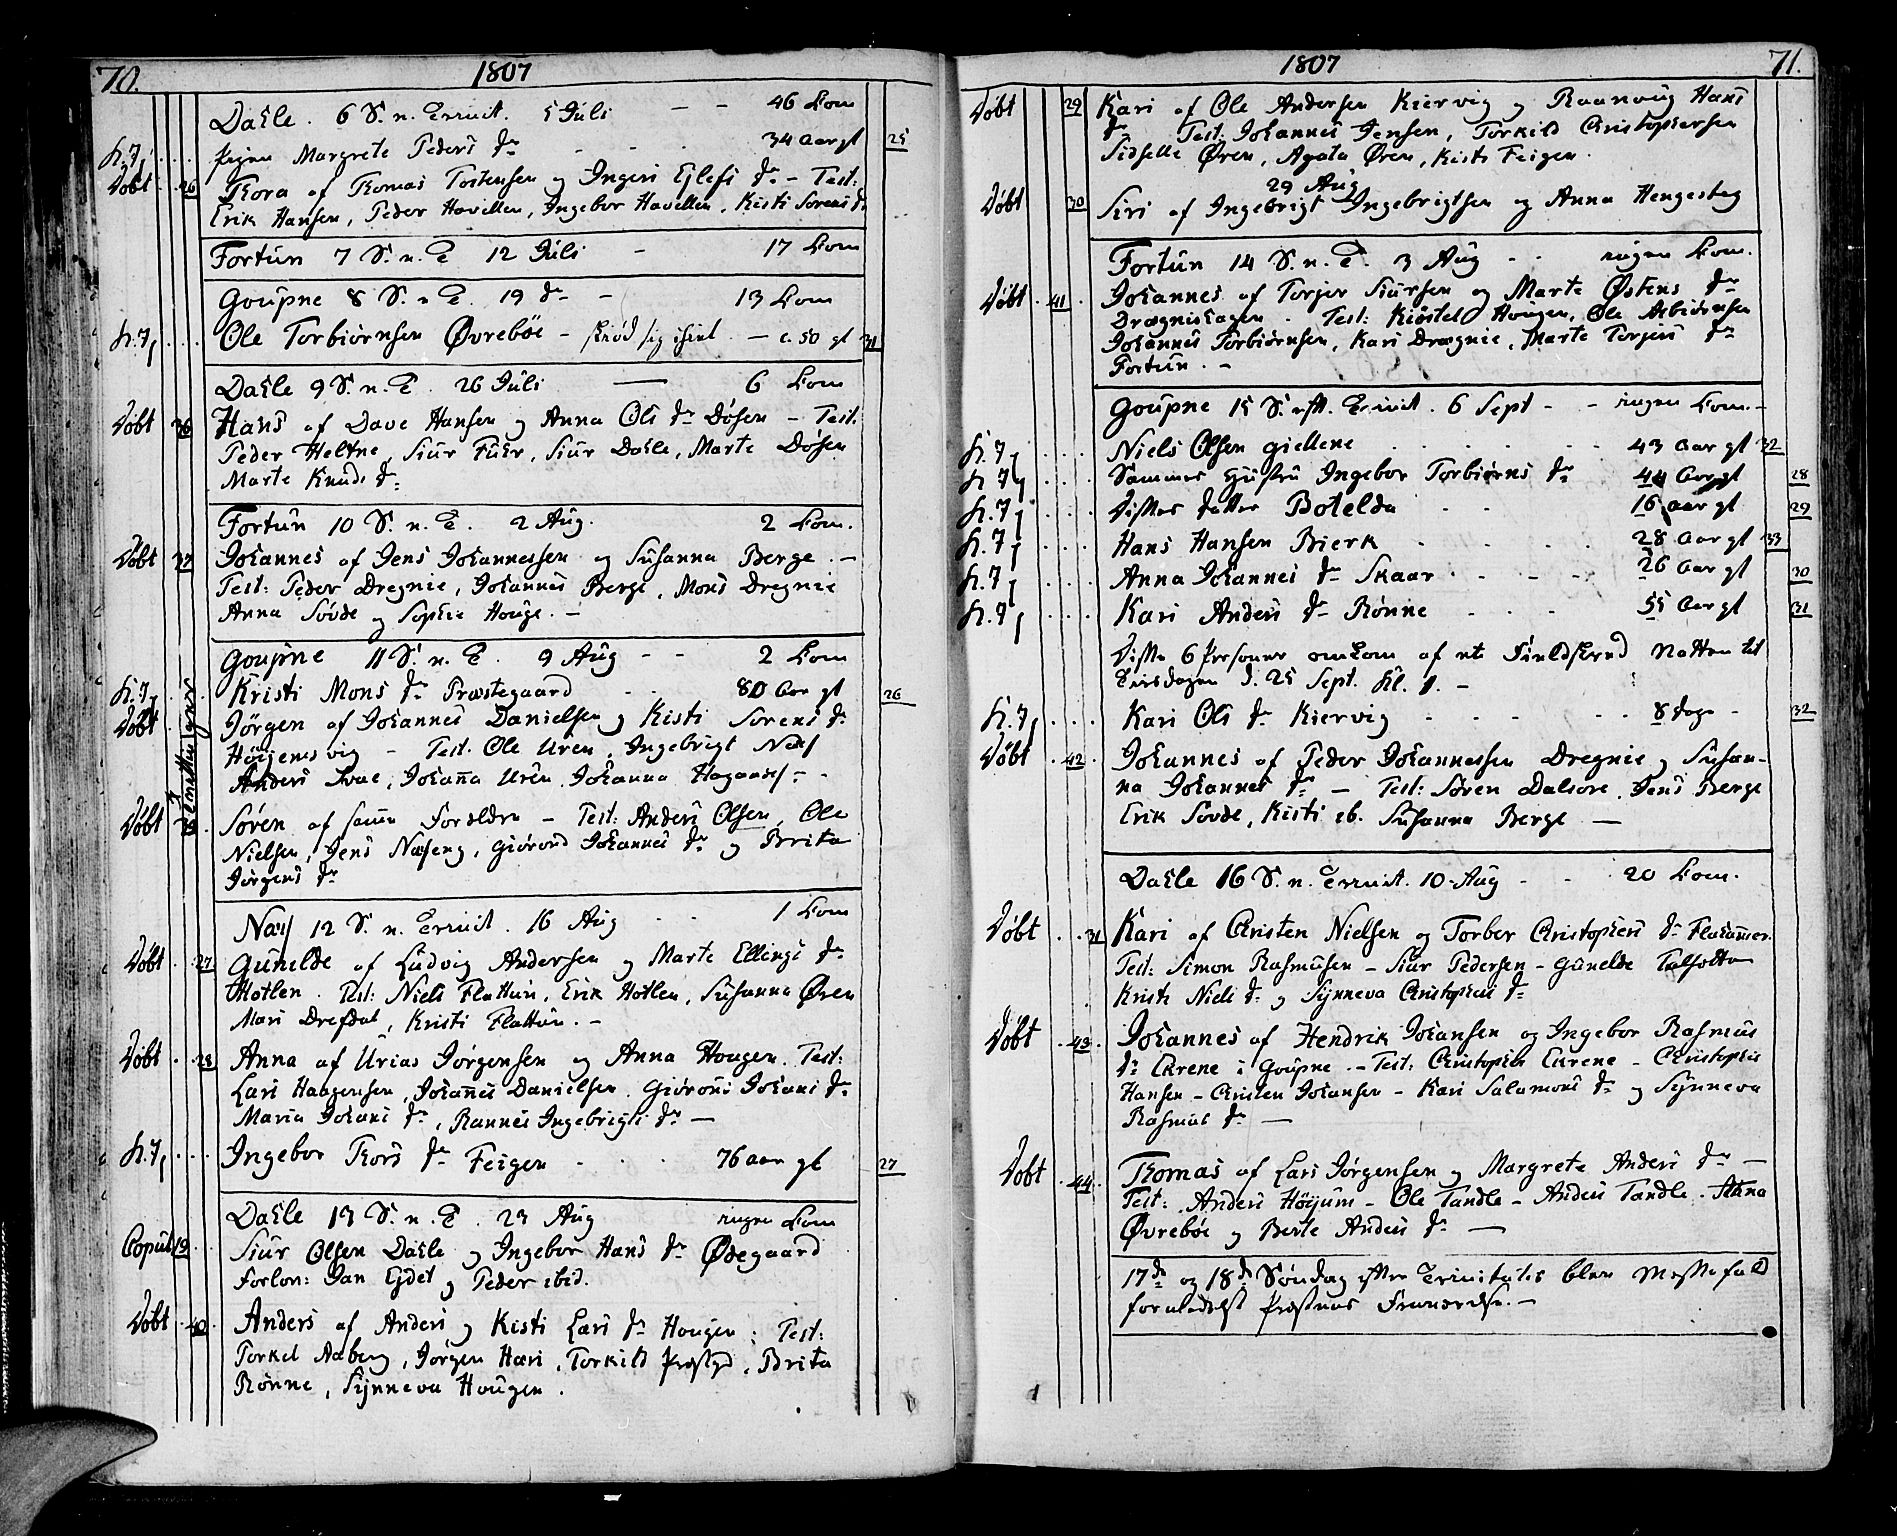 70.
1807
Dahle. 6 S. n. Trinit. 5 Juli - - 46 Com
K. J, Pigen Margrete Peders Dr - - - 34 Aar gl 25
Døbt 26 Thora af Thomas Tostensen og Ingeri Ejlefs Dr - Test:
Erik Hansen, Peder Havellen, Ingebor Havellen, Kisti Sørens Dr
Fortun 7 S. n. T 12 Juli - 17 Com
Goupne 8 S. n T. 19 dr - 13 Com
K. J, Ole Torbiørnsen Øvrebøe - - c. 50 gl 31
Dahle 9 S. n. T. 26 Juli — 6 Com
Døbt 36 Hans af Dave Hansen og Anna Ols Dr Døsen - Test:
Peder Heltne, Siur Fuhr, Siur Dahle, Marte Døsen
Marte Knuds Dr
Fortun 10 S. n. T. 2 Aug. 2 Com.
Døbt 37 Johannes af Jens Johannessen og Susanna Berge. -
Test: Peder Dregnie, Johannes Berge, Mons Dregnie
Anna Søvde og Sophie Houge. -
Goupne 11 S. n. T. 9 Aug - - 2 Com
K. J, Kristi Mons Dr Præstegaard - - 80 Aar gl 26
Døbt Jørgen af Johannes Danielsen og Kisti Sørens Dr
Høijenesvig - Test: Ole Uren, Ingebrigt Næss
Anders Svae, Johanna Uren Johanna Hagaas - -
Døbt Søren af samme Forældre - Test: Anders Olsen, Ole
Nielsen, Jens Næseng, Giørond Johannes Dr og Brita
Jørgens Dr
Næss 12 S. n. Trinit. 16 Aug - - 1 Com
Døbt 27 Gunilde af Ludvig Andersen og Marte Ellings Dr
Hotlen. Test: Niels Flattun, Erik Hotlen, Susanna Øren
Mari Drefdal, Kristi Flattun. -
Døbt 28 Anna af Urias Jørgensen og Anna Hougen. Test:
Lars Haagensen, Johannes Danielsen. Giørond Johans Dr
Maria Johans Dr, Rannei Ingebrigts Dr -
K. J, Ingebor Thors Dr Feigen - - - 76 aar gl 27
Dahle 13 S. n. T. 23 Aug ingen Com
Copul 19 Siur Olsen Dahle og Ingebor Hans Dr Ødegaard
Forlov: Jan Ejdet og Peder ibid.
Døbt 40 Anders af Anders og Kisti Lars Dr Hougen; Test:
Torkel Aaberg, Jørgen Hæri, Torkild Præstgd, Brita
Rønne, Synneva Hougen.
1807
71.
Døbt 29 Kari af Ole Andersen Kiervig og Raanvug Hans
Dr Test: Johannes Jensen, Torkild Christophersen
Sidselle Øren, Agata Øren, Kisti Feigen.
29 Aug
Døbt 30 Siri af Ingebrigt Ingebrigtsen og Anna Hengesteg
Fortun 14 S. n. T. 3 Aug - - ingen Com.
Døbt 41 Johannes af Torjer Siursen og Marte Østens Dr
Drægnishagen. Test: Kiøstel Hougen, Ole Asbiørnsen
Johannes Torbiørnsen, Kari Drægnie, Marte Torjers Dr
Fortun. -
Goupne 15 S. eft. Trinit. 6 Sept - - ingen Com. -
K. J, Niels Olsen Giellene 43 Aar gl 32
K. J, Sammes Hustru Ingebor Torbiørns Dr 44 Aar gl 28
K. J, Disses Datter Botelda 16 Aar gl 29
K. J, Hans Hansen Bierk 28 Aar gl 33
K. J, Anna Johannes Dr Skaar 26 Aar gl 30
K. J, Kari Anders Dr Rønne 55 Aar gl 31
Disse 6 Personer omkom af et Fieldskred Natten til
Tirsdagen d. 25 Sept. Kl. 1. -
K. J, Kari Ols Dr Kiervig 8 dage - 32
Døbt 42 Johannes af Peder Johannessen Dregnie og Susan-
na Johannes Dr - Test: Søren Dalsøre. Jens Berge
Erik Søvde, Kisti ib. Susanna Berge —
Dahle 16 S. n. Trinit. 10 Aug - - 20 Com.
Døbt 31 Kari af Christen Nielsen og Torber Christophers Dr Flahammer.
Test: Simon Rasmusen - Siur Pedersen - Gunilde
Kristi Niels Dr og Synneva Christophers Dr
Døbt 43 Johannes af Hendrik Johansen og Ingebor Rasmus
Dr Ekrene i Goupne. - Test: Christopher Ekrene - Christopher
Hansen - Christen Johansen - Kari Salamons Dr og Synneva
Rasmus Dr —
Døbt 44 Thomas af Lars Jørgensen og Margrete Anders Dr —
Test: Anders Høyum - Ole Tandle - Anders Tandle. Anna
Øvrebøe og Berte Anders Dr —
17de og 18de Søndag efter Trinitatis blev Messefald
formedelst Præstens Fraværelse. -